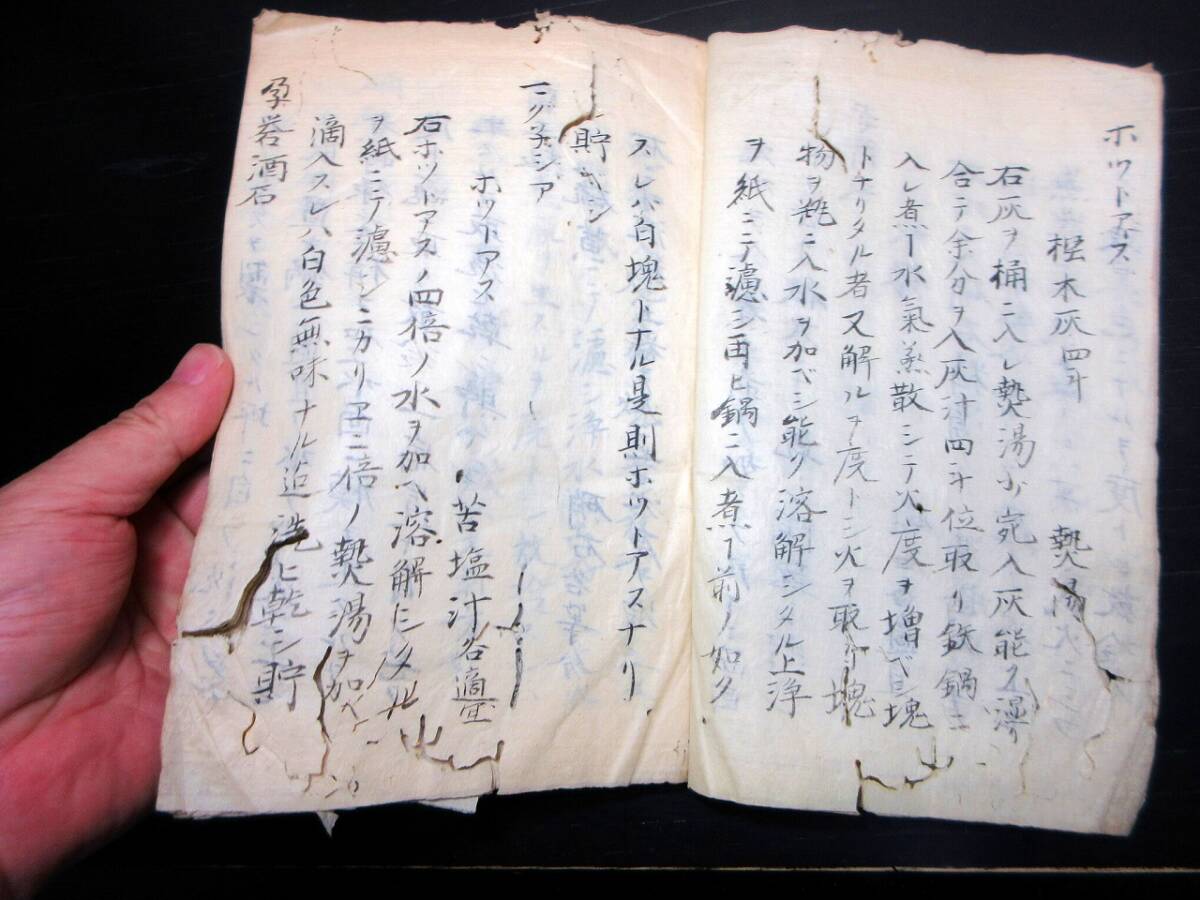 ホツトアース
樫木灰四斗 熱湯
石灰ヲ桶ニ入レ熱湯少宛入灰能ク湿リ
合テ余分ヲ入灰汁四斗位取リ鉄鍋ニ
入レ煮ー水氣蒸散シテ火度ヲ増ベ塊
トナリタル者又解ルヲ度トシ火ヲ取ケ塊
物ヲ瓶ニ入水ヲ加ベシ能ク溶解シタル上浄
ヲ紙ニテ濾シ再ヒ鍋ニ入煮ー前ノ如ク
スレハ白塊トナル是則ホツトアスナリ
貯ベシ
マグ子シア
ホツトアス 苦塩汁各適宜
右ホツトアスノ四倍ノ水ヲ加ヘ溶解シタル
ヲ紙ニテ濾シニカリヱニ倍ノ熱湯ヲ加ベ
滴入スレハ白色無味ナル迄洗ヒ乾シ貯
酒石